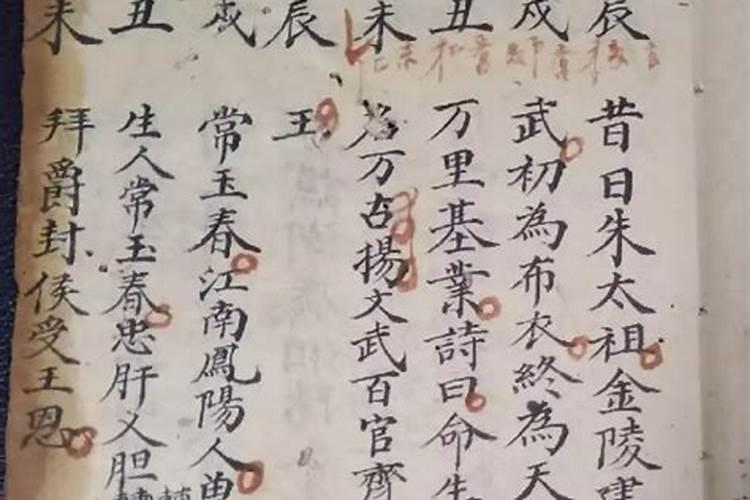 辰
戌
丑
未
辰
戌
丑
未
昔日朱太祖金陵建
武初為布衣終為天
万里基業詩曰命生
名万古揚文武百官齊
王
常玉春江南鳳陽人
生人常玉春忠肝义胆
拜爵封侯受王恩